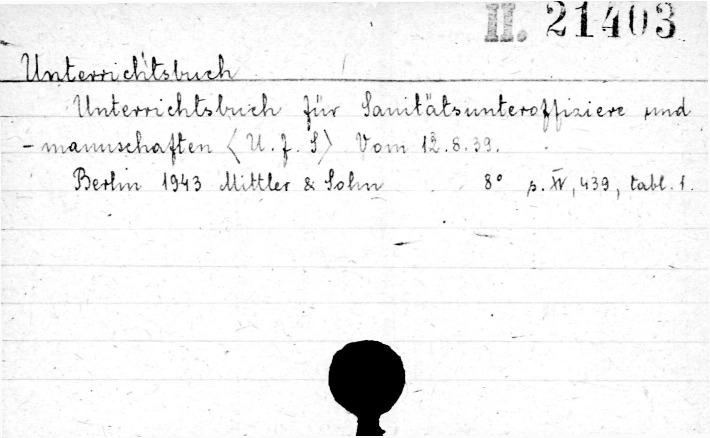 II. 21403
Unterrichtsbuch
Unterrichtsbuch für Sanitätsunteroffiziere und
- mannschaften <U. f. S> Vom 12.8.39.
Berlin 1943 Mittler & Sohn 8° s. XV, 439, tabl. 1.